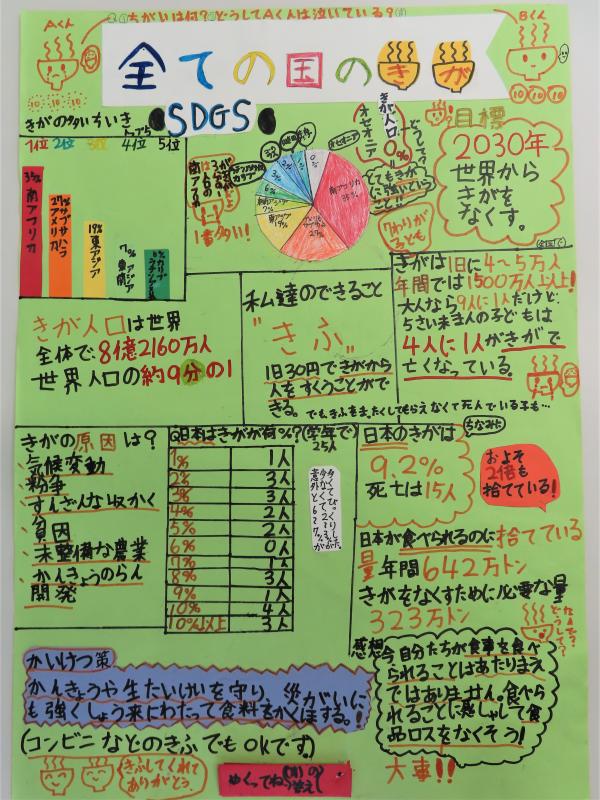 ちがいは何?どうしてAくんは泣いている?
Aくん
Bくん
全ての国のきが
SDGS
きがの多いちいき
トップ5
1位 2位 3位 4位 5位
南アフリカ
27%
19%
東アジア
7%
1番多い!
南アフリカ
南アジア
19%
27%
7%
6%
0%
オセオニア
きが人口0%
どうして?
とてもきが
に強いという
こと!!
目標
2030年
世界から
きがを
なくす。
7わりが
子ども
きがは1日に4~5万人
年間では1500万人以上!
大人なら9人に1人だけど、
5さい未まんの子どもは
4人に1人がきがで
亡くなっている。
きが人口は世界
全体で、8億2160万人
世界人口の約9分の1
私達のできること
"きふ"
1日30円できがから
人をすくうことがで
きる。でもきふをまったくしてもらえなくて死んでいる子も…
きがの原因は?
気候変動
紛争
すんざんな収かく
貧困
未整備な農業
かんきょうのらん
開発
Q日本はきがが何%?(学年で)
25人
1% 1人
2% 3人
3% 3人
4% 2人
5% 2人
6% 0人
7% 1人
8% 3人
9% 1人
10% 4人
10%以上 3人
日本のきがは
ちなみに
9.2%
死亡は15人
およそ
2倍も
捨てている!
日本が食べられるのに捨てている
量年間642万トン
きがをなくすために必要な量
323万トン
なんで?
どうして?
感想
今自分たちが食事を食べ
られることはあたりまえ
ではありません。食べら
れることに感しゃして食
品ロスをなくそう!
大事!!
かいけつ策
かんきょうや生たいけいを守り、災がいに
も強くしょう来にわたって食料をかくほする。!
(コンビニなどのきふでもOKです。)
きふしてくれて
ありがとう。
めくってね(Aの答え)